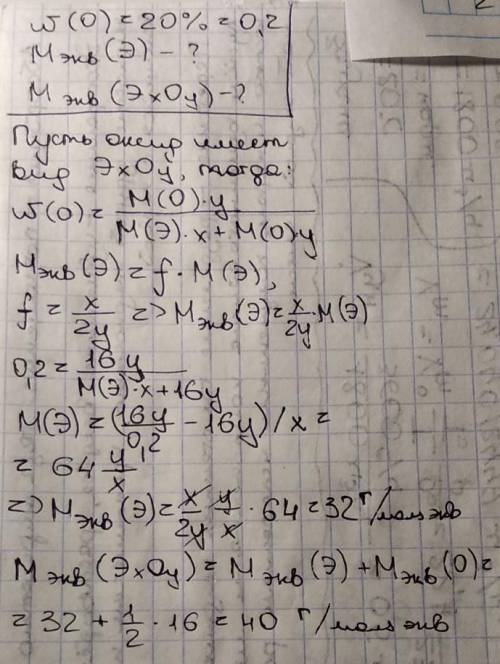 ω(O) = 20% = 0,2
Mэкв(Э) - ?
Mэкв(ЭxOy) - ?
Пусть оксид имеет
вид ЭxOy, тогда:
ω(O) = M(O)·y / M(Э)·x + M(O)y
Mэкв(Э) = f · M(Э),
f = x/2y => Mэкв(Э) = x/2y · M(Э)
0,2 = 16y / M(Э)·x + 16y
M(Э) = (16y/0,2 - 16y) / x =
= 64 y/x
=> Mэкв(Э) = x/2y · y/x · 64 = 32 г/моль экв
Mэкв(ЭxOy) = Mэкв(Э) + Mэкв(O) =
= 32 + 1/2 · 16 = 40 г/моль экв